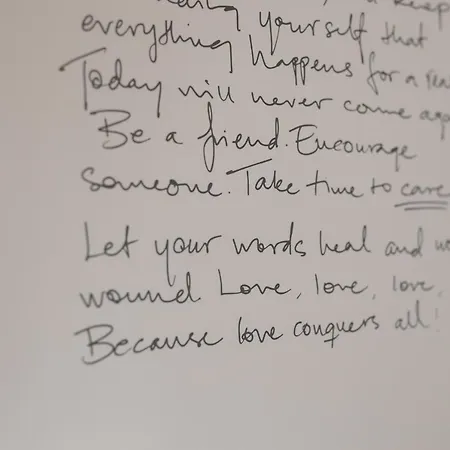 keep
yourself that
everything happens for a
Today will never come
Be a friend. Encourage
someone. Take time to care
Let your words heal and
wound. Love, love, love,
Because love conquers all!